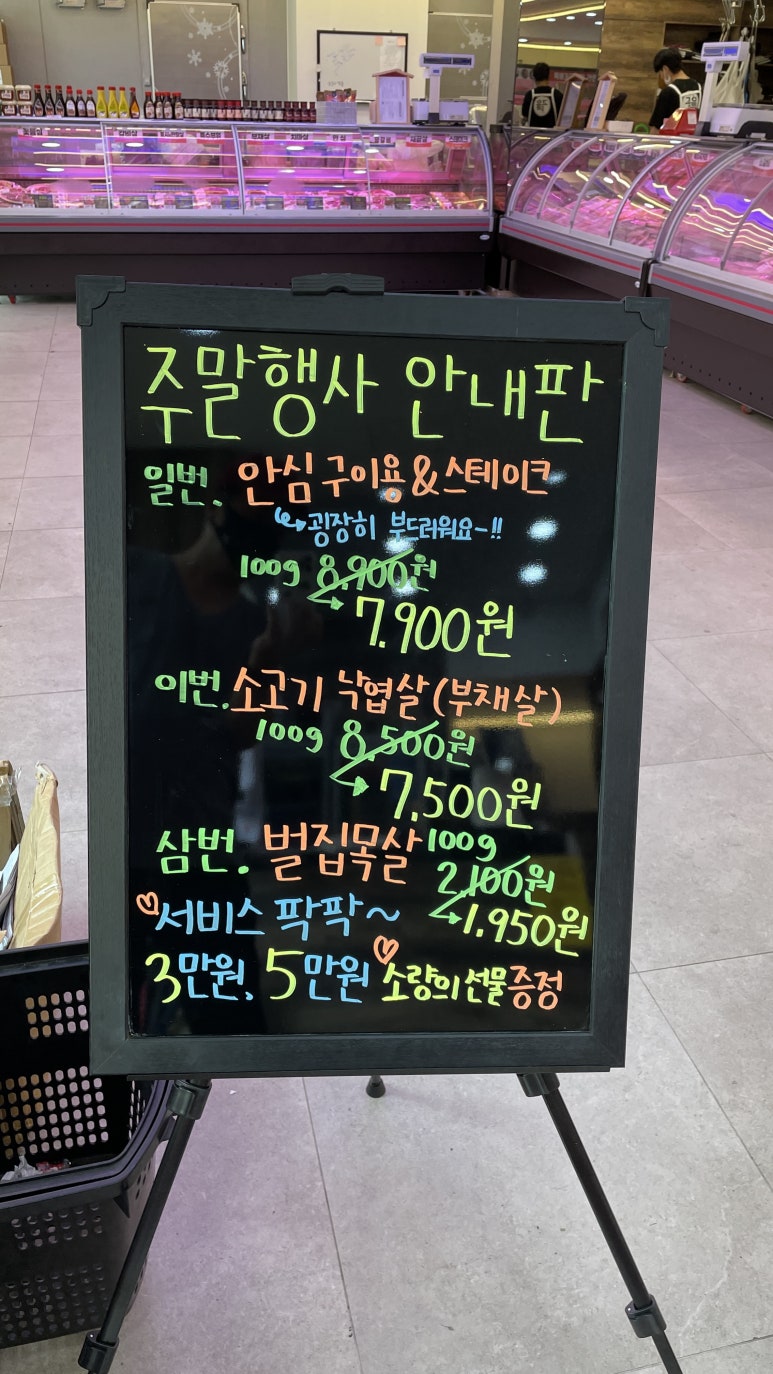 주말행사 안내판
일번. 안심 구이용&스테이크
굉장히 부드러워요~!!
100g 8.900원
7.900원
이번. 소고기 낙엽살(부채살)
100g 8.500원
7.500원
삼번. 벌집목살 100g
2.100원
1.950원
서비스 팍팍~
3만원, 5만원 소량의 선물 증정